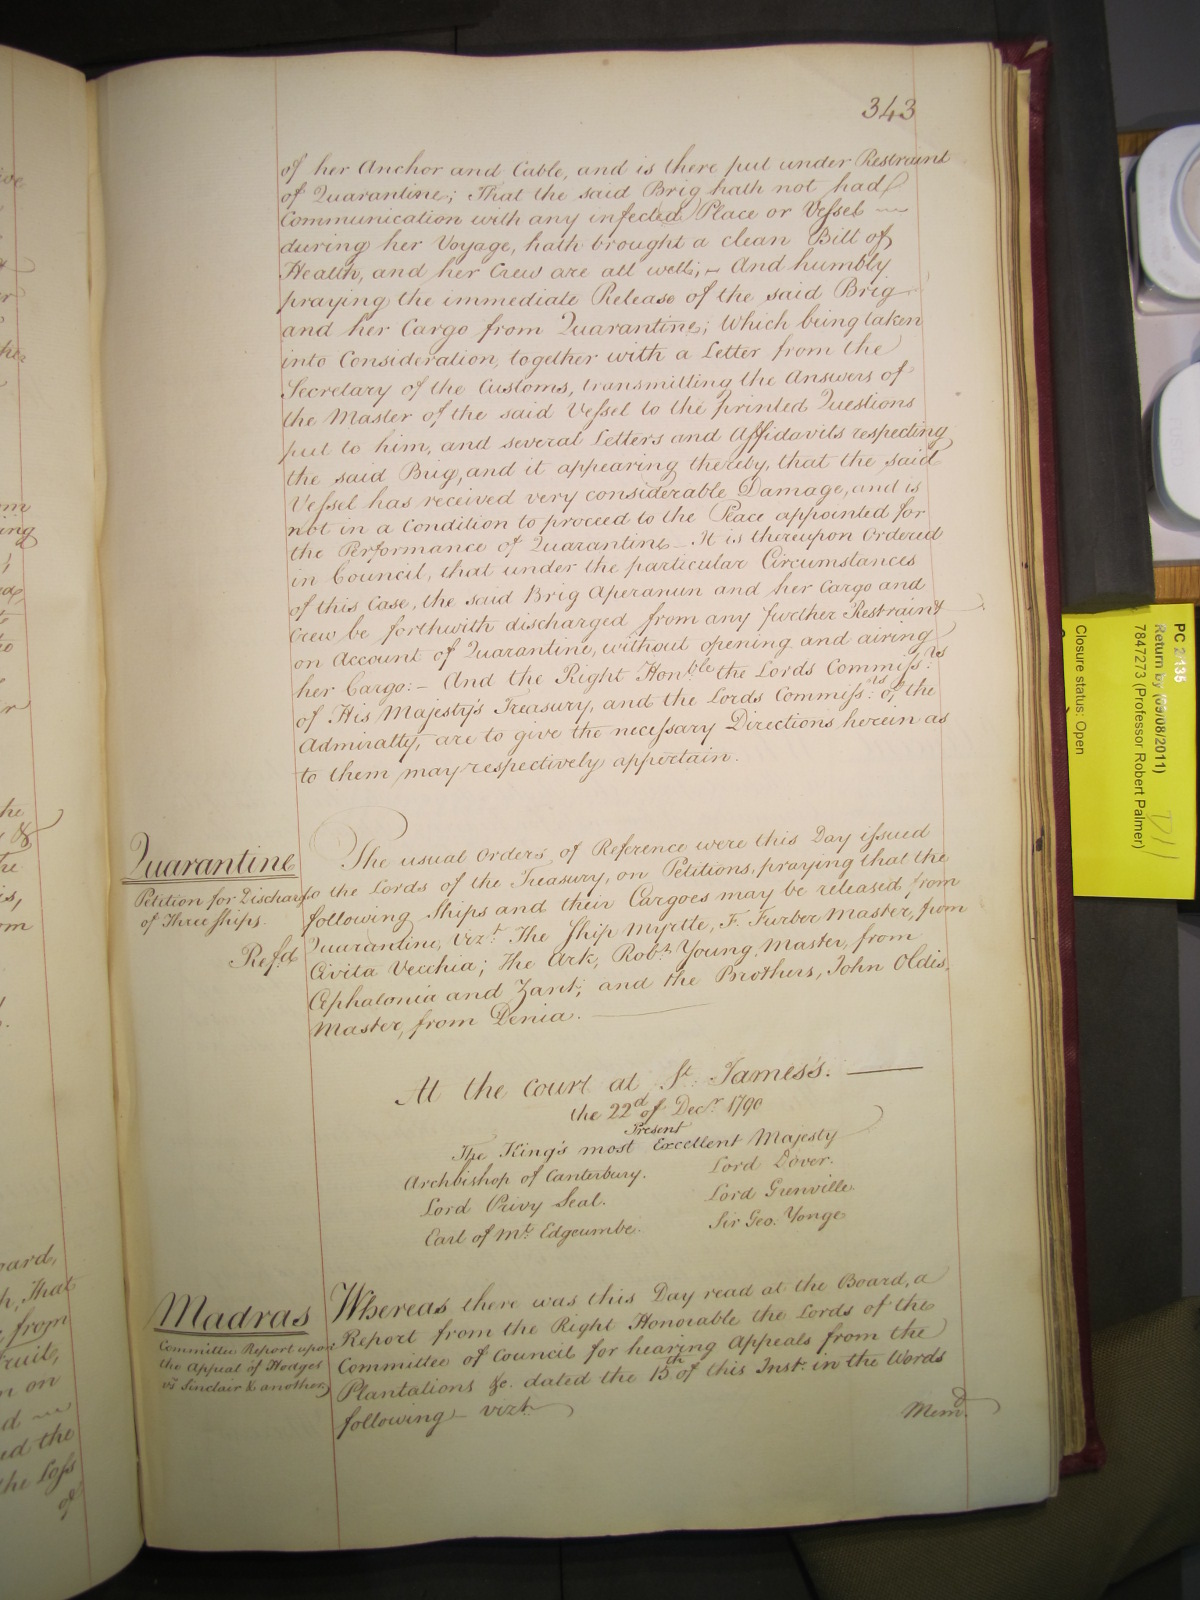 343
of her Anchor and Cable, and is there put under Restraint
of Quarantine; That the said Brig hath not had
Communication with any infected Place or Vessel
during her Voyage, hath brought a clean Bill of
Health, and her Crew are all well; - And humbly
praying the immediate Release of the said Brig
and her Cargo from Quarantine; Which being taken
into Consideration, together with a Letter from the
Secretary of the Customs, transmitting the Answers of
the Master of the said Vessel to the printed Questions
put to him, and several Letters and Affidavits respecting
the said Brig, and it appearing thereby, that the said
Vessel has received very considerable Damage, and is
not in a Condition to proceed to the Place appointed for
the Performance of Quarantine - It is thereupon Ordered
in Council, that under the particular Circumstances
of this Case, the said Brig Aperanun and her Cargo and
Crew be forthwith discharged from any further Restraint
on Account of Quarantine, without opening and airing
her Cargo: - And the Right Honble the Lords Commissrs
of His Majesty's Treasury, and the Lords Commissrs of the
Admiralty, are to give the necessary Directions herein as
to them may respectively appertain.
Quarantine
Petition for Discharge
of Three Ships.
Refd
The usual Orders of Reference were this Day issued
to the Lords of the Treasury, on Petitions, praying that the
following Ships and their Cargoes may be released from
Quarantine, vizt. The Ship Myrtle, F. Furber Master, from
Civita Vecchia; The Ark, Robt. Young Master, from
Cephalonia and Zant; and the Brothers, John Oldis
Master, from Denia.
At the Court at St. James's.
the 22d of Decr. 1790
Present
The King's most Excellent Majesty
Archbishop of Canterbury. Lord Dover.
Lord Privy Seal. Lord Grenville
Earl of Mt. Edgcumbe. Sir Geo. Yonge
Madras
Committee Report upon
the Appeal of Hodges
vs Sinclair & another
Whereas there was this Day read at the Board, a
Report from the Right Honorable the Lords of the
Committee of Council for hearing Appeals from the
Plantations &c. dated the 15th of this Inst. in the Words
following - vizt.
Memd.
PC 2/135
Return by (09/08/2011)
7847273 (Professor Robert Palmer)
Closure status: Open